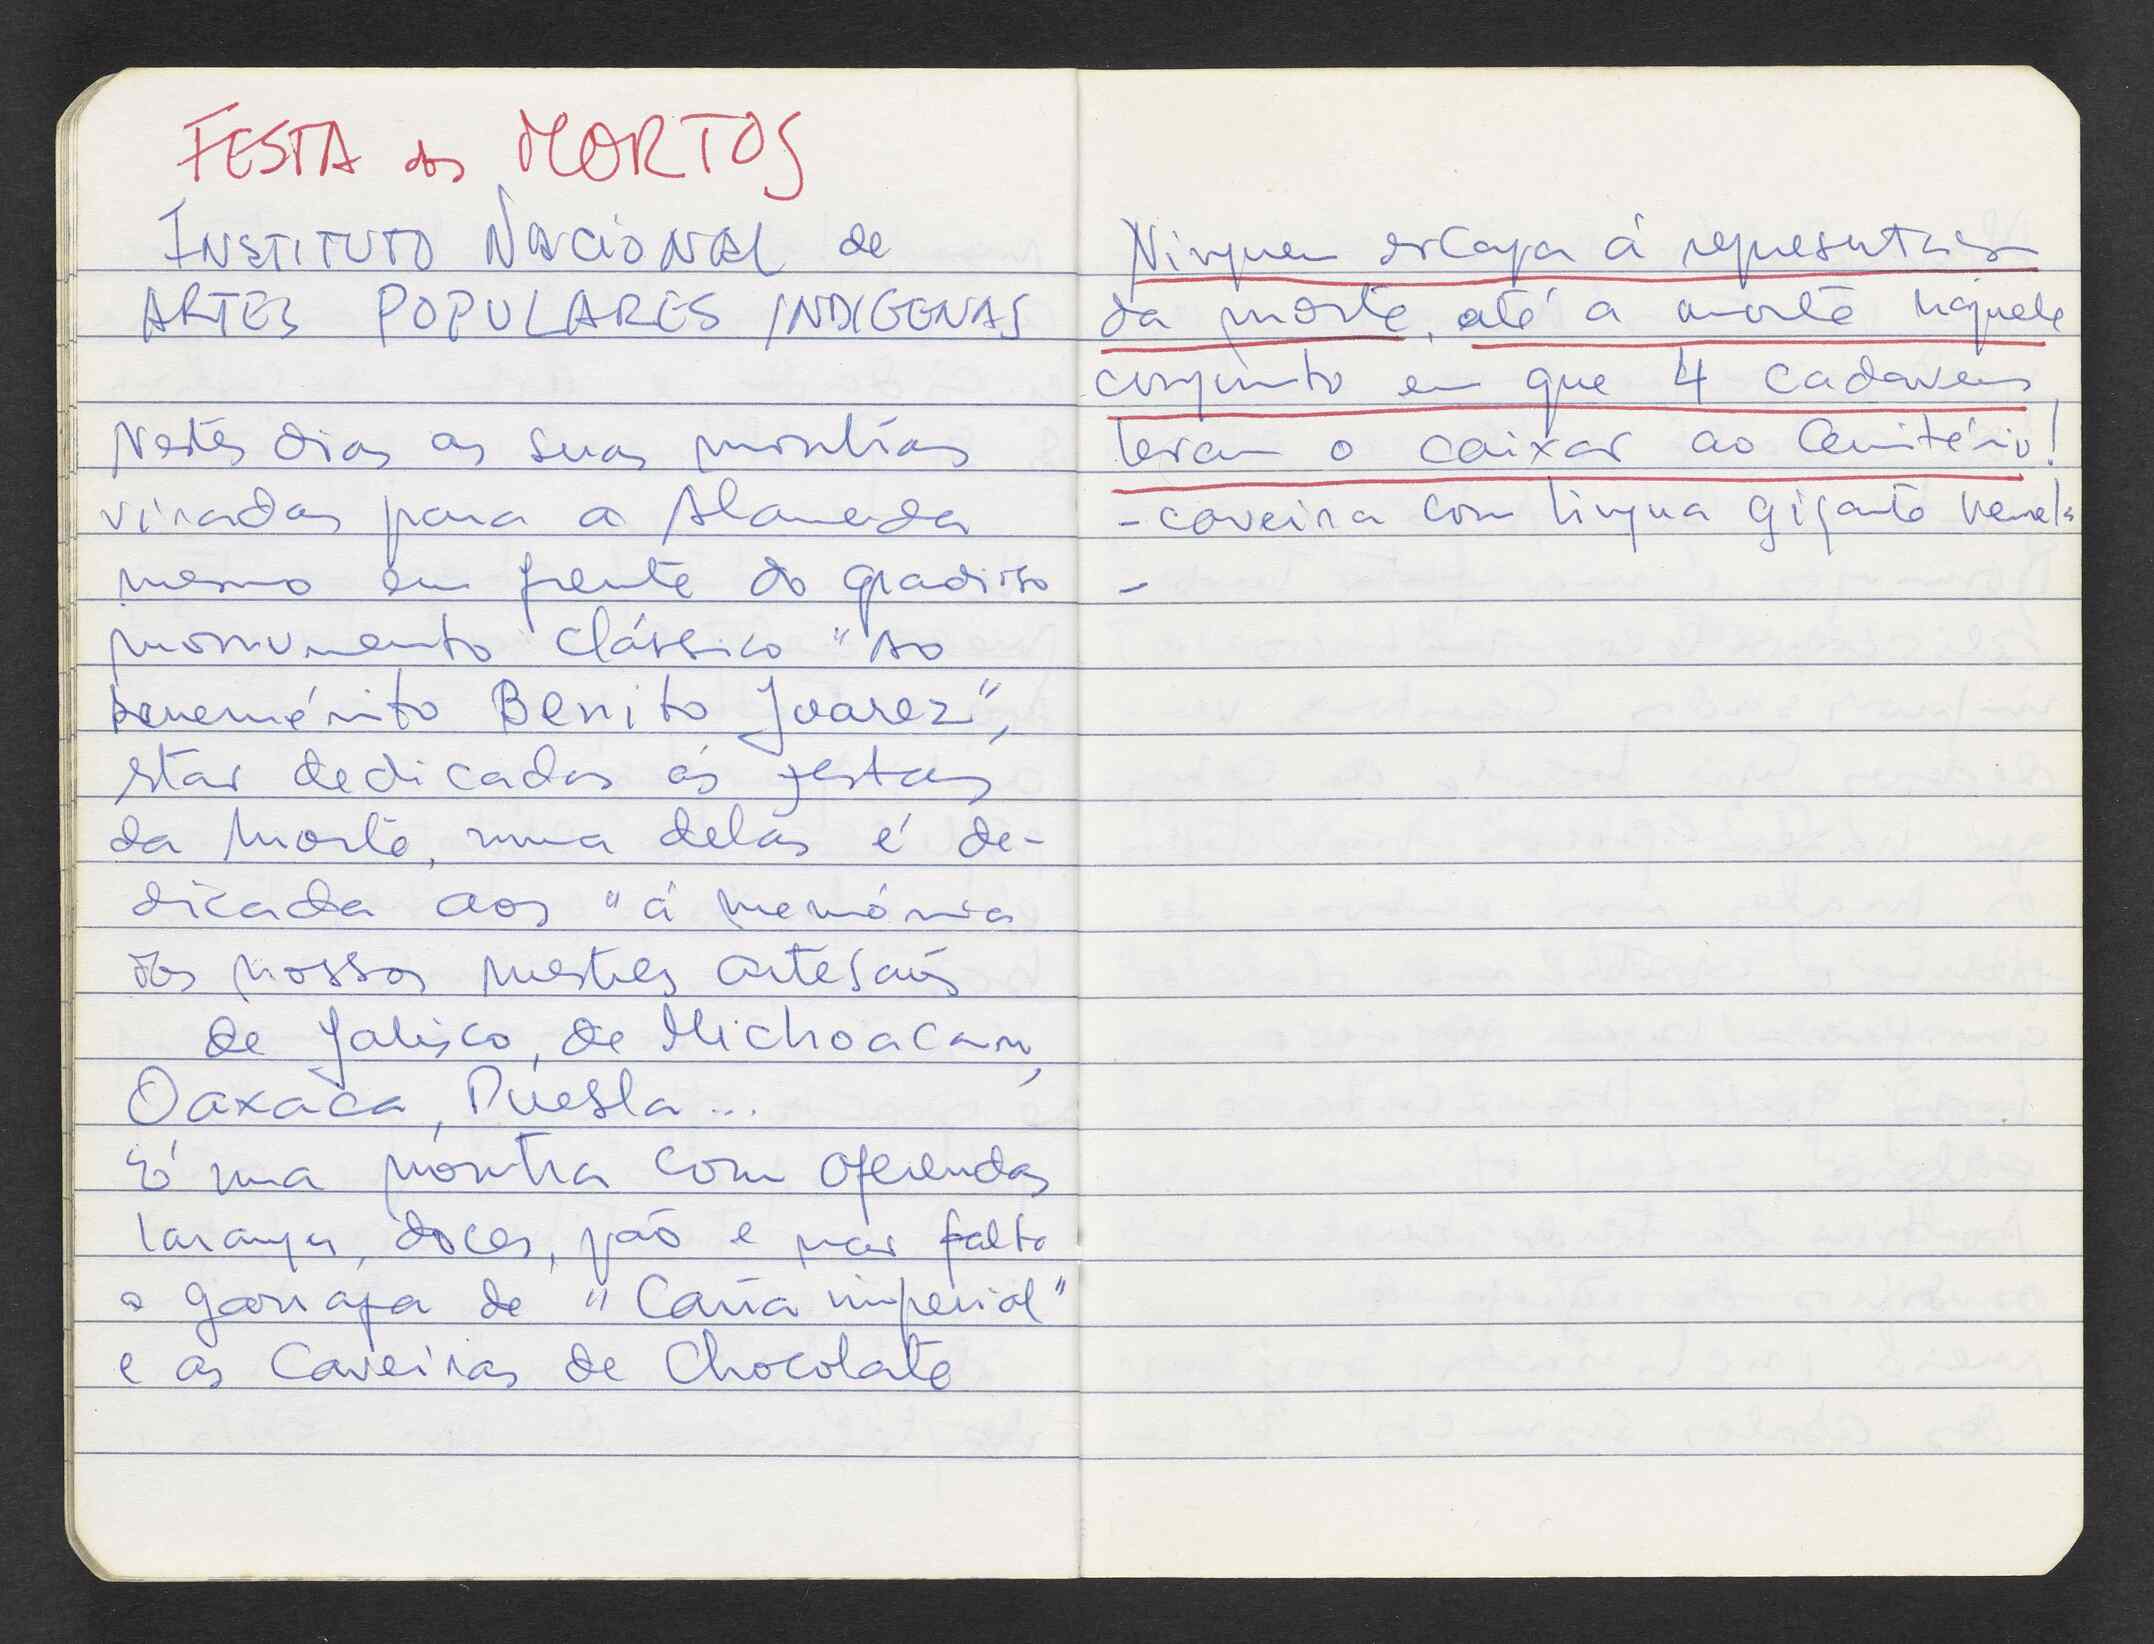 FESTA dos MORTOS
INSTITUTO NACIONAL de
ARTES POPULARES INDIGENAS
Nestes dias as suas montras
viradas para a Alameda
mesmo em frente do
monumento "clássico" "ao
benemérito Benito Juarez",
star dedicadas ás festas
da morte, uma delas é de-
dicada aos "á memória
dos nossos mestres artesãos
de Jalisco, de Michoacan,
Oaxaca, Puebla...
É uma montra com oferendas
laranjas, doces, pão e não falta
a garrafa de "Caña imperial"
e as Caveiras de Chocolate
Ninguem escapa á representação
da morte, até a morte naquele
conjunto em que 4 cadaveres
levam o caixão ao Cemitério!
- caveira com lingua gigante
-